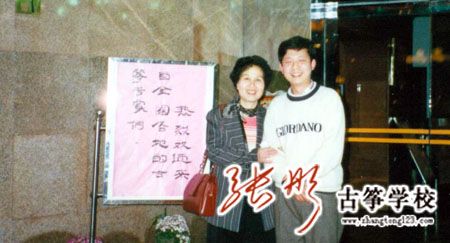 热烈欢迎来
自全国各地的古
筝专家们.
GIORDANO
张彤
古筝学校
www.zhangtong123.com